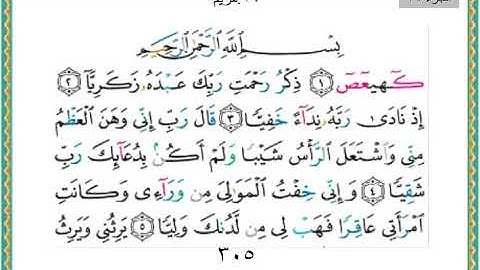 ١٩ مريم
بِسْمِ اللَّهِ الرَّحْمَٰنِ الرَّحِيمِ
كٓهيعٓصٓ ۝١ ذِكْرُ رَحْمَتِ رَبِّكَ عَبْدَهُۥ زَكَرِيَّآ ۝٢
إِذْ نَادَىٰ رَبَّهُۥ نِدَآءً خَفِيًّا ۝٣ قَالَ رَبِّ إِنِّى وَهَنَ الْعَظْمُ
مِنِّى وَاشْتَعَلَ الرَّأْسُ شَيْبًا وَلَمْ أَكُنۢ بِدُعَآئِكَ رَبِّ
شَقِيًّا ۝٤ وَإِنِّى خِفْتُ الْمَوَٰلِىَ مِن وَرَآءِى وَكَانَتِ
امْرَأَتِى عَاقِرًا فَهَبْ لِى مِن لَّدُنكَ وَلِيًّا ۝٥ يَرِثُنِى وَيَرِثُ
٣٠٥